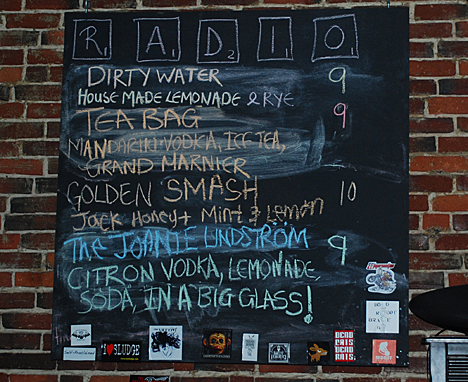 R A D I O
1 1 2 1 1
DIRTY WATER 9
HOUSE MADE LEMONADE & RYE
TEA BAG 9
MANDARIN VODKA, ICE TEA,
GRAND MARNIER
GOLDEN SMASH 10
Jack Honey + Mint & Lemon
THE JOANIE LINDSTRÖM 9
CITRON VODKA, LEMONADE,
SODA IN A BIG GLASS!
I SLUDGE
DEAD
CATS
DEAD
RATS